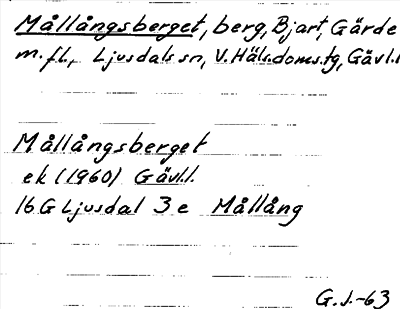 Mållångsberget, berg, Bjart, Gärde
m.fl., Ljusdals sn, V. Häls.doms.tg, Gävl.l
Mållångsberget
ek (1960) Gävl.l.
16 G Ljusdal 3 e Mållång
G.J.-63